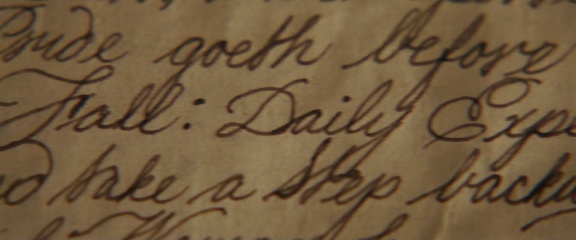 Pride goeth before
Fall: Daily Expe
nd take a step backw